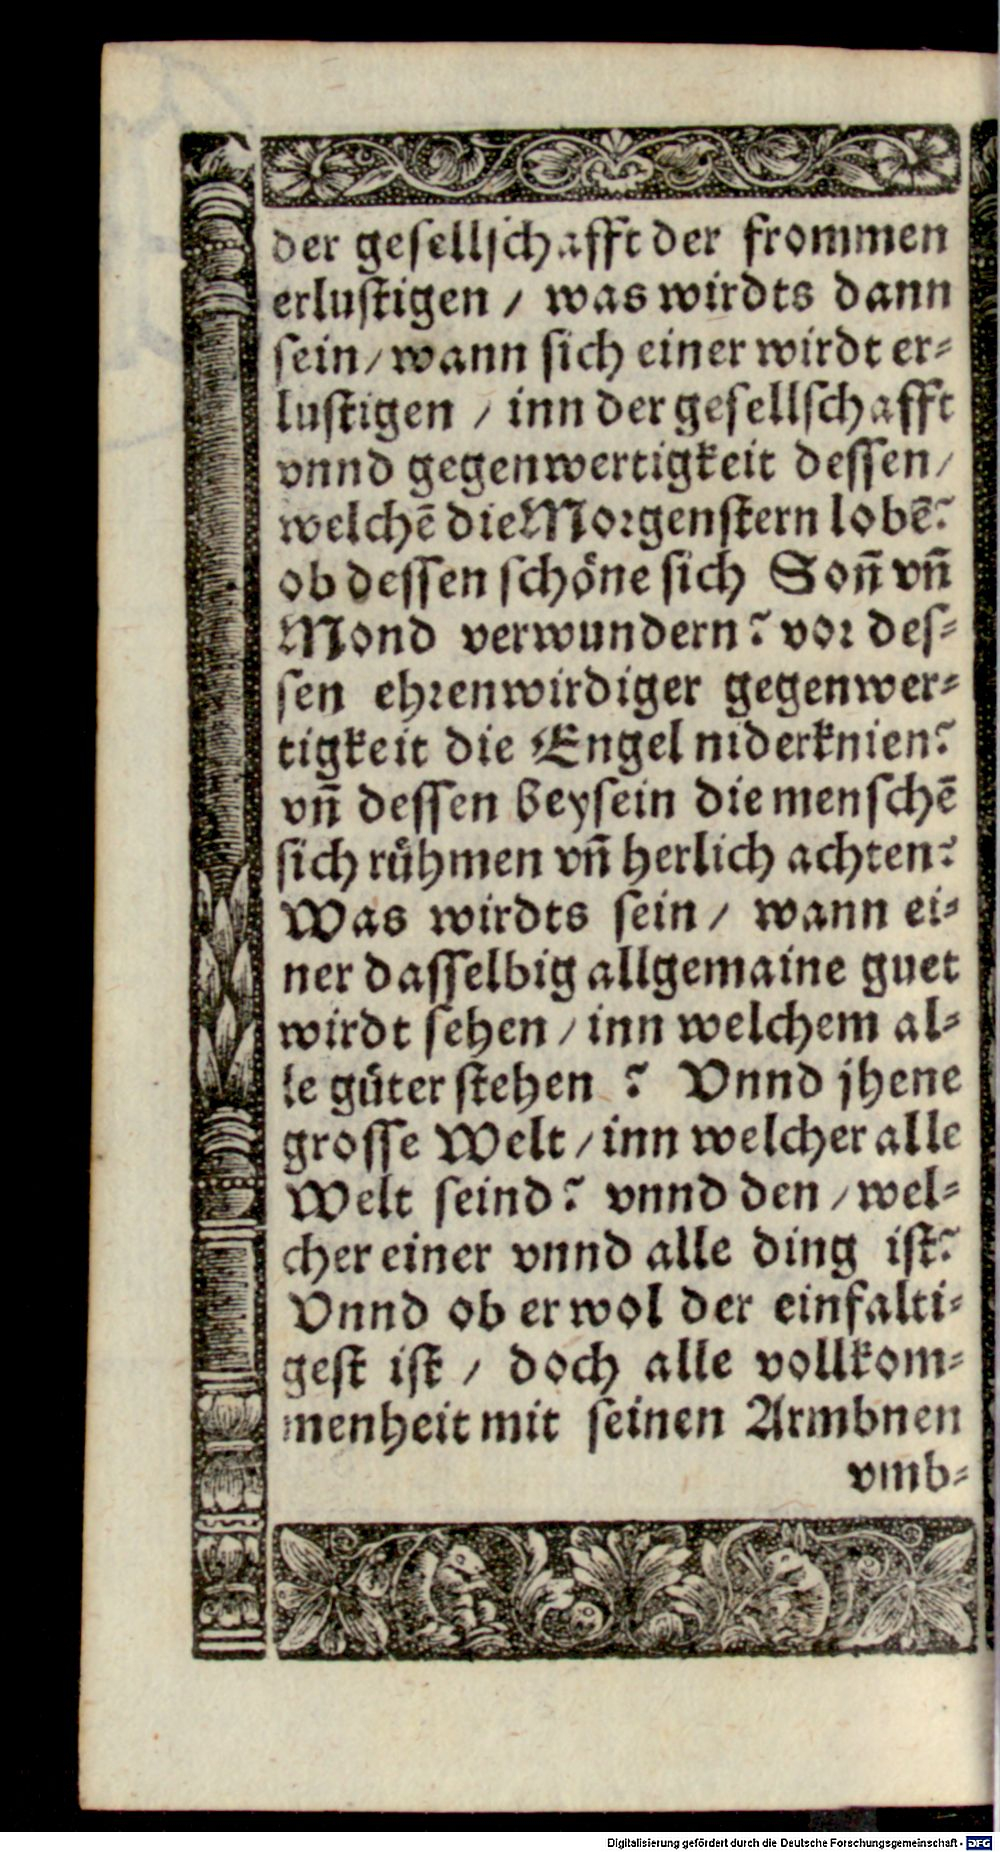 der gesellschafft der frommen
erlustigen / was wirdts dann
sein / wann sich einer wirdt er⸗
lustigen / inn der gesellschafft
vnnd gegenwertigkeit dessen /
welchē die Morgenstern lobē?
ob dessen schöne sich Soñ vñ
Mond verwundern? vor des⸗
sen ehrenwirdiger gegenwer⸗
tigkeit die Engel niderknien?
vñ dessen beysein die menschē
sich rühmen vñ herlich achten?
Was wirdts sein / wann ei⸗
ner dasselbig allgemaine guet
wirdt sehen / inn welchem al⸗
le güter stehen ? Vnnd jhene
grosse Welt / inn welcher alle
Welt seind? vnnd den / wel⸗
cher einer vnnd alle ding ist?
Vnnd ob er wol der einfalti⸗
gest ist / doch alle vollkom⸗
menheit mit seinen Armbnen
vmb⸗
Digitalisierung gefördert durch die Deutsche Forschungsgemeinschaft - DFG